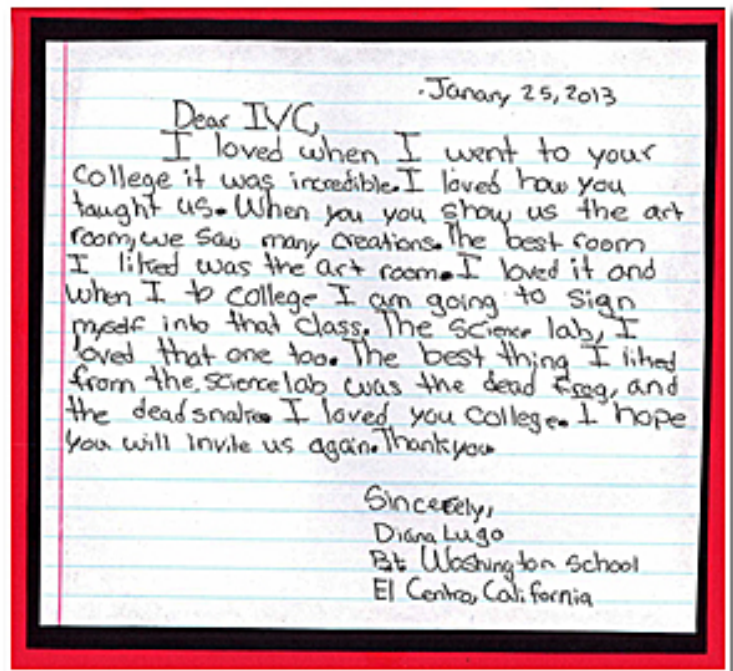 Janary 25, 2013
Dear IVC,
I loved when I went to your
College it was incredible. I loved how you
taught us. When you you show us the art
room, we saw many creations. The best room
I liked was the art room. I loved it and
when I to college I am going to sign
myself into that class. The Science lab, I
loved that one too. The best thing I liked
from the science lab was the dead frog, and
the dead snake. I loved you college. I hope
you will invite us again. Thank you
Sincerely,
Diana Lugo
Bt Washington School
El Centro, California